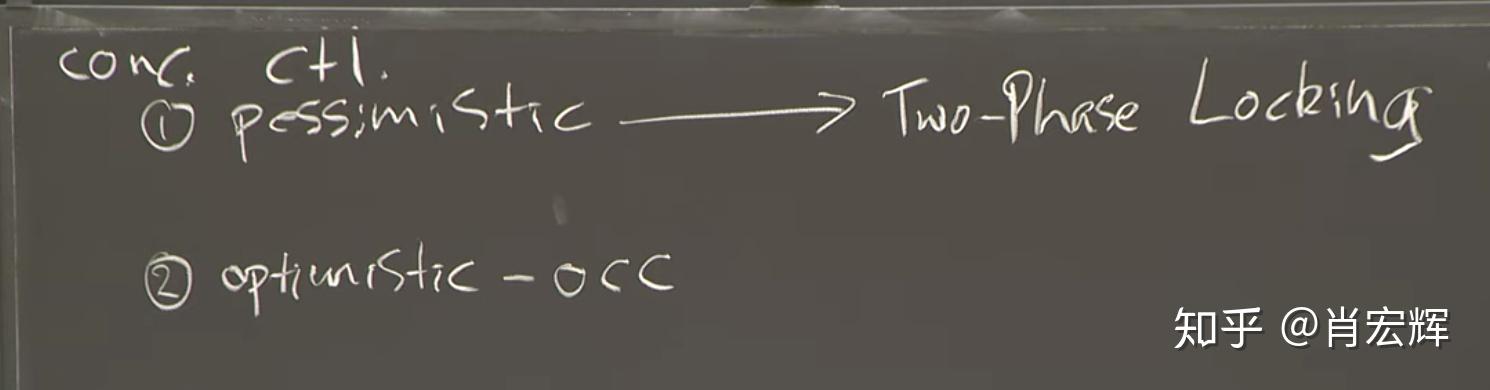 conc. ctl.
① pessimistic ⟶ Two-Phase Locking
② optimistic - OCC
知乎 @肖宏辉